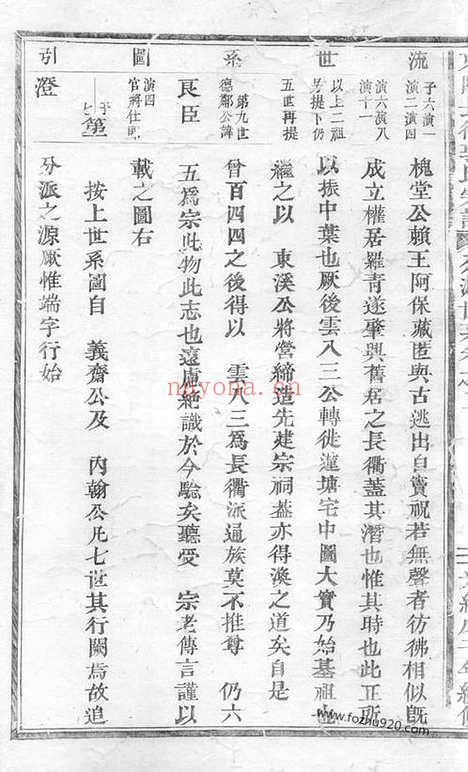 流 子六演一
演二演四
演六演八
演十一
槐堂公賴王阿保藏匿與古逃出自賣視若無聲者彷彿相似既
成立權居羅青遂肇興舊居之長衢蓋其潛也惟其時也此正所
世 以上二祖
另提下仍
五世再提
以振中葉也厥後雲八三公轉徙蓮塘宅中圖大實乃始基祖也
繼之以 東溪公將營締造先建宗祠蓋亦得渙之道矣自是
系 第九世
德鄰公諱
曾百四四之後得以 雲八三爲長衢派通族莫不推尊 仍六
良臣
五爲宗此物此志也遠慮絶識於今驗矣聽受 宗老傳言謹以
圖 演四
官將仕郎
載之圖右
第
按上世系圖自 義齋公及 內翰公凡七世其行闕焉故追
引 澄
分派之源厥惟端字行始
nayona.cn
www.fozhu920.com